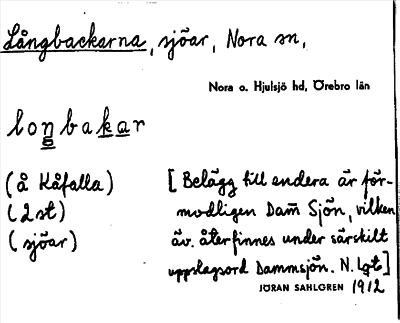 Långbackarna, sjöar, Nora sn,
Nora o. Hjulsjö hd, Örebro län
lonbakar
(å Kåfalla)
(2 st)
(sjöar)
[Belägg till endera är för-
modligen Dam̄ Sjön, vilken
äv. återfinnes under särskilt
uppslagsord Dammsjön. N. Lgt]
JÖRAN SAHLGREN 1912